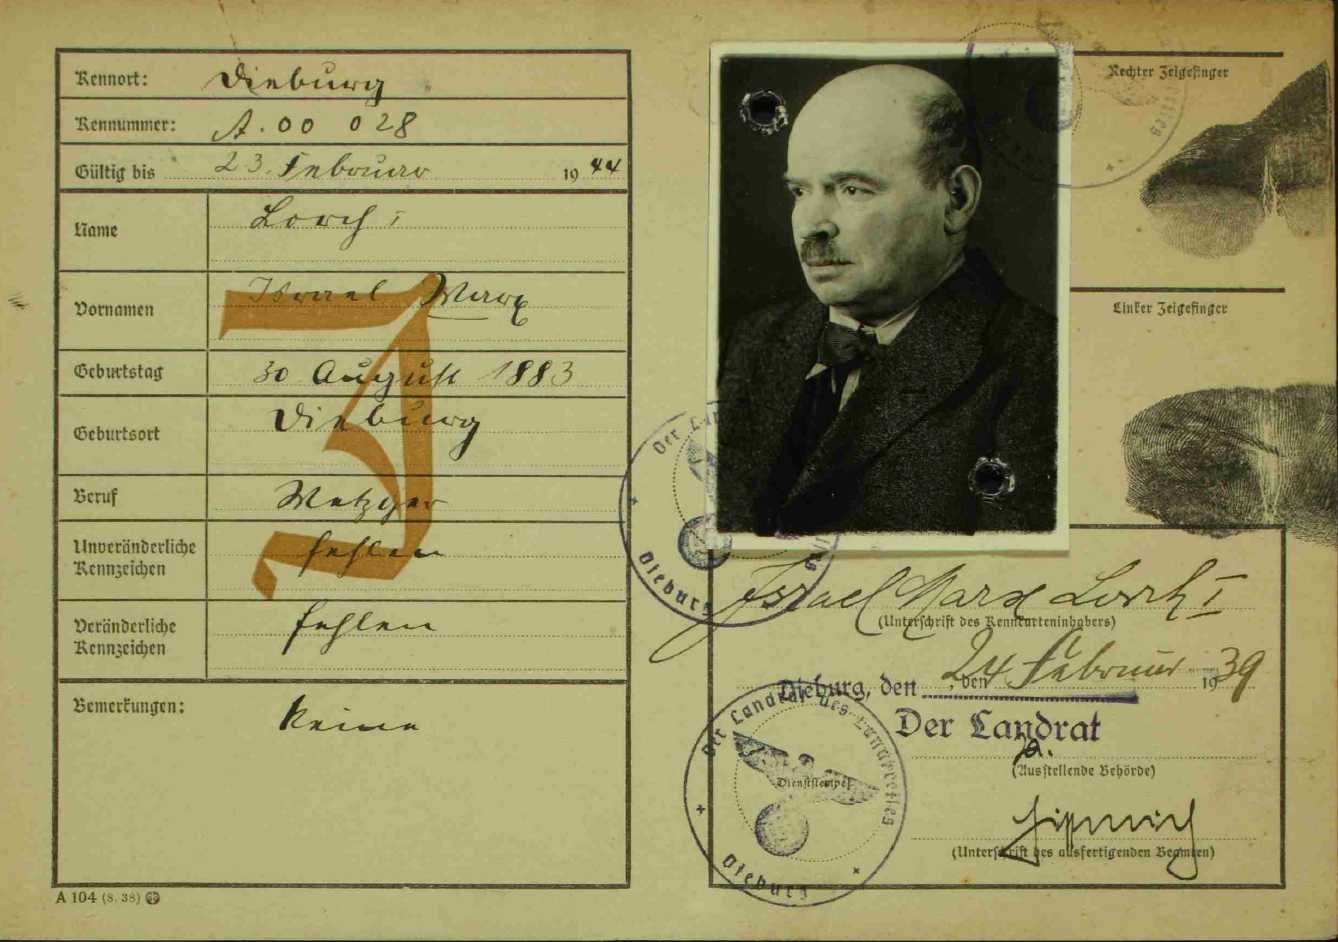 Kennort: Dieburg
Kennummer: A. 00 028
Gültig bis 23. Februar 1944
Name Lorch I
Vornamen Israel Marx
Geburtstag 30 August 1883
Geburtsort Dieburg
Beruf Metzger
Unveränderliche Kennzeichen fehlen
Veränderliche Kennzeichen fehlen
Bemerkungen: Keine
J
A 104 (8. 38)
Rechter Zeigefinger
Linker Zeigefinger
Der Landrat des Landkreises
Dieburg
Israel Marx Lorch I
(Unterschrift des Kennkarteninhabers)
Dieburg, den , den 24 Februar 1939
Der Landrat
(Ausstellende Behörde)
Der Landrat des Landkreises
Dienststempel
Dieburg
(Unterschrift des ausfertigenden Beamten)